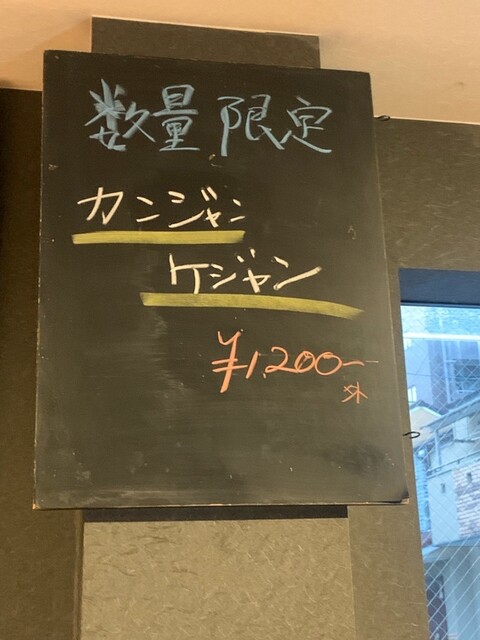 数量限定
カンジャン
ケジャン
¥1,200-
外